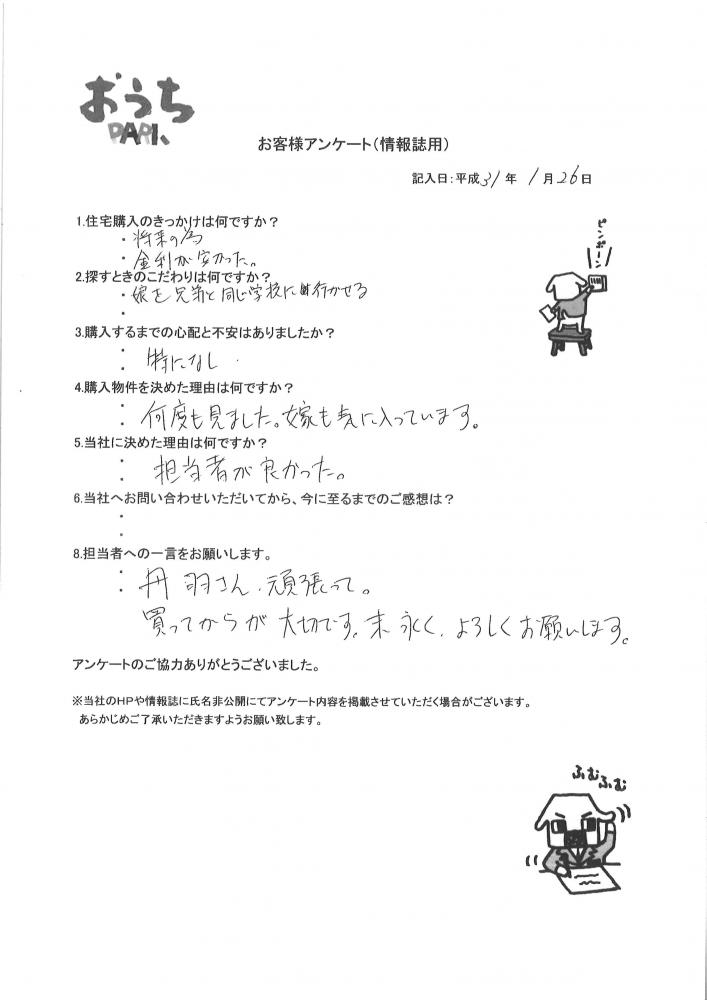 おうち
PARK
お客様アンケート(情報誌用)
記入日:平成31年 1月26日
1.住宅購入のきっかけは何ですか?
・将来の為
・金利が安かった。
2.探すときのこだわりは何ですか?
・娘を兄弟と同じ学校に行かせる
・
3.購入するまでの心配と不安はありましたか?
・特になし
・
4.購入物件を決めた理由は何ですか?
・何度も見ました。嫁も気に入っています。
・
5.当社に決めた理由は何ですか?
・担当者が良かった。
・
6.当社へお問い合わせいただいてから、今に至るまでのご感想は?
・
・
8.担当者への一言をお願いします。
・丹羽さん、頑張って。
・買ってからが大切です。末永く、よろしくお願いします。
アンケートのご協力ありがとうございました。
※当社のHPや情報誌に氏名非公開にてアンケート内容を掲載させていただく場合がございます。
あらかじめご了承いただきますようお願い致します。
ピンポーン
ふむふむ